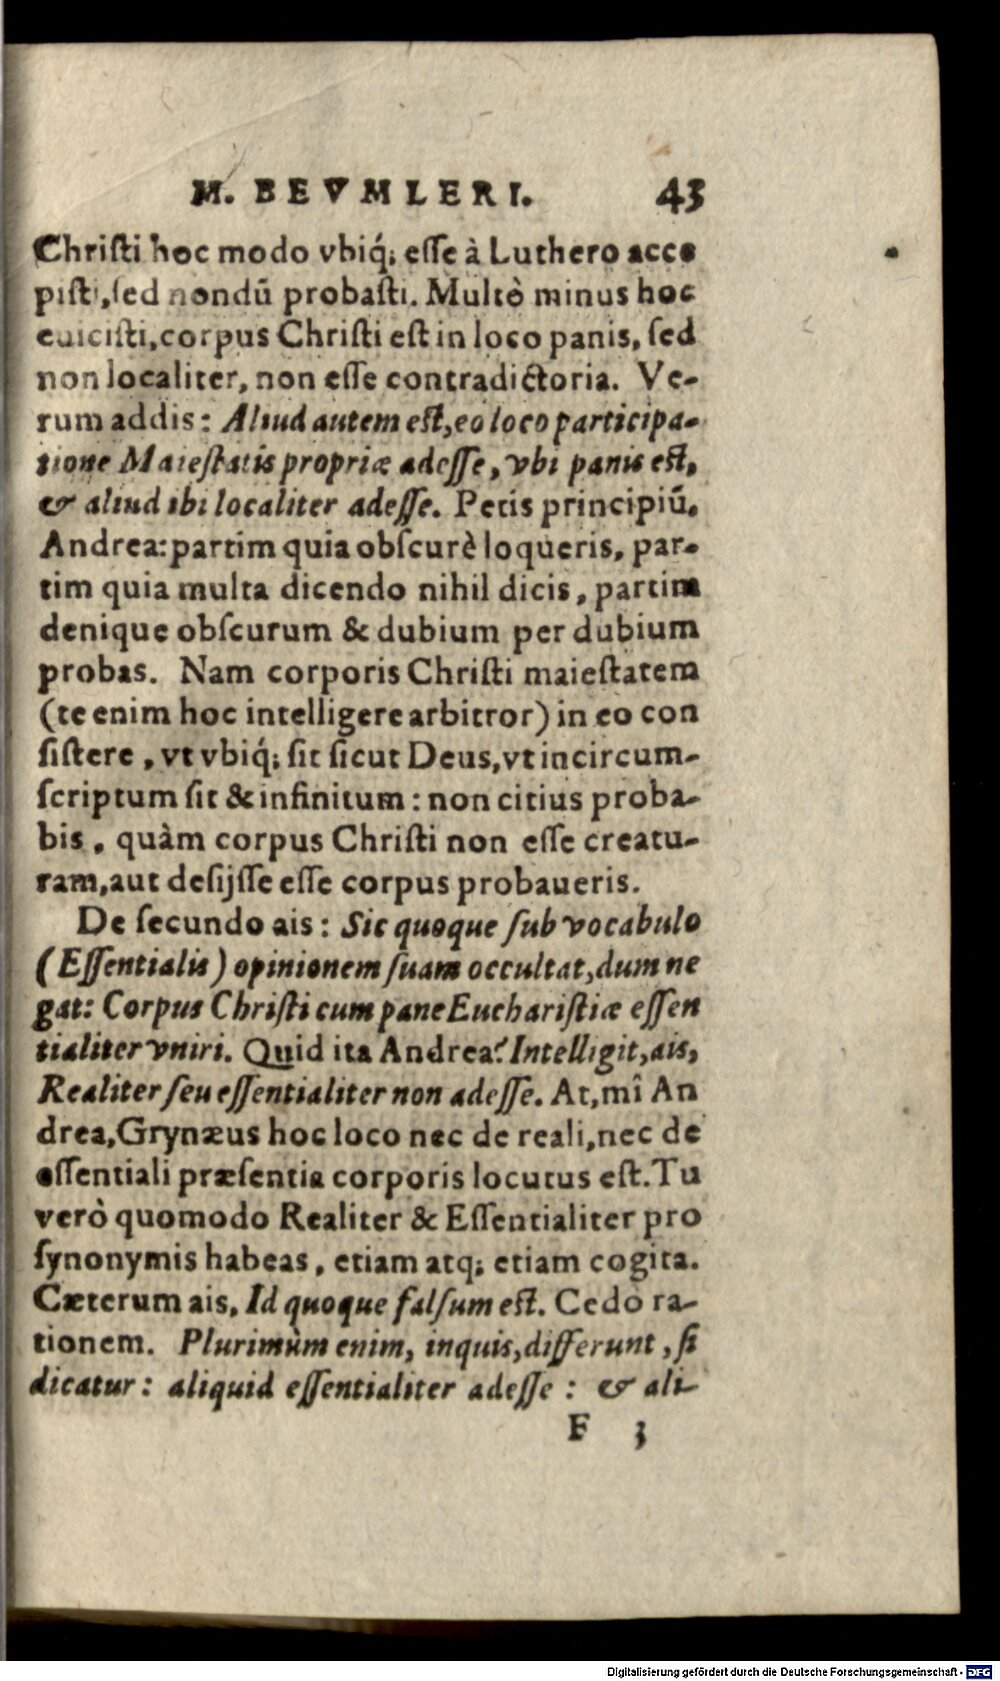 M. BEVMLERI. 43
Chriſti hoc modo vbiq́; eſſe à Luthero acce
piſti, ſed nondū probaſti. Multò minus hoc
euiciſti, corpus Chriſti eſt in loco panis, ſed
non localiter, non eſſe contradictoria. Ve-
rum addis: Aliud autem eſt, eo loco participa-
tione Maieſtatis propriæ adeſſe, vbi panis eſt,
& aliud ibi localiter adeſſe. Petis principiū,
Andrea: partim quia obſcurè loqueris, par-
tim quia multa dicendo nihil dicis, partim
denique obſcurum & dubium per dubium
probas. Nam corporis Chriſti maieſtatem
(te enim hoc intelligere arbitror) in eo con
ſiſtere, vt vbiq́; ſit ſicut Deus, vt incircum-
ſcriptum ſit & infinitum: non citius proba-
bis, quàm corpus Chriſti non eſſe creatu-
ram, aut deſijſſe eſſe corpus probaueris.
De ſecundo ais: Sic quoque ſub vocabulo
(Eſſentialis) opinionem ſuam occultat, dum ne
gat: Corpus Chriſti cum pane Euchariſtiæ eſſen
tialiter vniri. Quid ita Andrea? Intelligit, ais,
Realiter ſeu eſſentialiter non adeſſe. At, mî An
drea, Grynæus hoc loco nec de reali, nec de
eſſentiali præſentia corporis locutus eſt. Tu
verò quomodo Realiter & Eſſentialiter pro
ſynonymis habeas, etiam atq; etiam cogita.
Cæterum ais, Id quoque falſum eſt. Cedò ra-
tionem. Plurimùm enim, inquis, differunt, ſi
dicatur: aliquid eſſentialiter adeſſe: & ali-
F 3
Digitalisierung gefördert durch die Deutsche Forschungsgemeinschaft - DFG